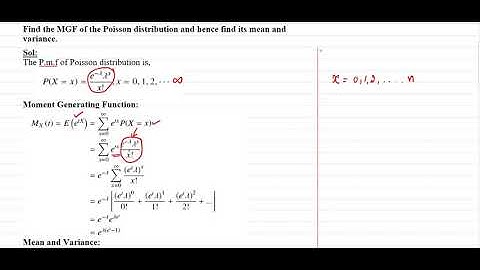 Find the MGF of the Poisson distribution and hence find its mean and
variance.
Sol:
The P.m.f of Poisson distribution is,
P(X = x) = e^{-λ}λ^x / x!, x = 0, 1, 2, ⋯ ∞
x = 0, 1, 2, .... n
Moment Generating Function:
M_X(t) = E(e^{tX}) = ∑_{x=0}^{∞} e^{tx} P(X = x)
= ∑_{x=0}^{∞} e^{tx} e^{-λ}λ^x / x!
= e^{-λ} ∑_{x=0}^{∞} (e^t λ)^x / x!
= e^{-λ} [ (e^t λ)^0 / 0! + (e^t λ)^1 / 1! + (e^t λ)^2 / 2! + ... ]
= e^{-λ} e^{λe^t}
= e^{λ(e^t−1)}
Mean and Variance: